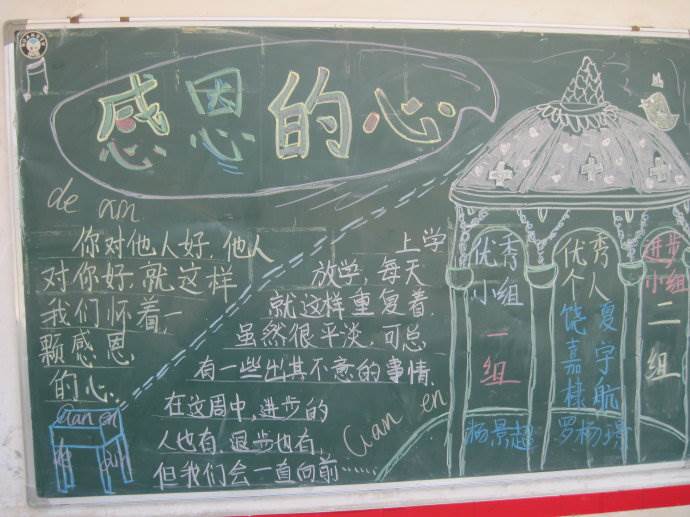 感恩的心
de an
你对他人好,他人
对你好,就这样
我们怀着一
颗感恩
的心..
上学
放学,每天
就这样重复着,
虽然很平淡,可总
有一些出其不意的事情.
在这周中,进步的
人也有,退步也有,
但我们会一直向前……
Gan en
Gan en
优秀
小组
一
组
优秀
个人
饶嘉棣
夏宇航
杨景超
罗杨
进步
小组
二
组